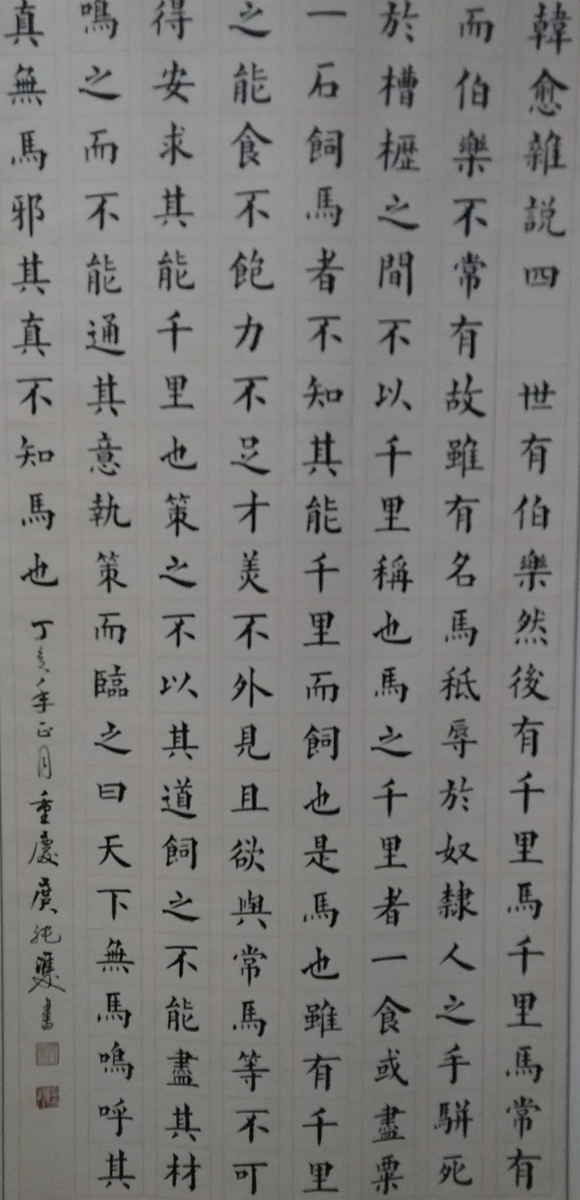 韓愈雜説四 世有伯樂然後有千里馬千里馬常有
而伯樂不常有故雖有名馬秪辱於奴隸人之手駢死
於槽櫪之間不以千里稱也馬之千里者一食或盡粟
一石飼馬者不知其能千里而飼也是馬也雖有千里
之能食不飽力不足才美不外見且欲與常馬等不可
得安求其能千里也策之不以其道飼之不能盡其材
鳴之而不能通其意執策而臨之曰天下無馬嗚呼其
真無馬邪其真不知馬也 丁亥年正月重慶書